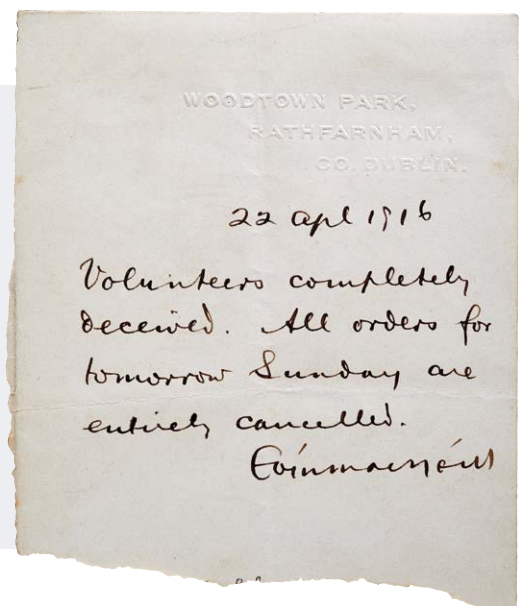 WOODTOWN PARK,
RATHFARNHAM,
CO. DUBLIN.
22 Apl 1916
Volunteers completely
deceived. All orders for
tomorrow Sunday are
entirely cancelled.
Eoin MacNéill